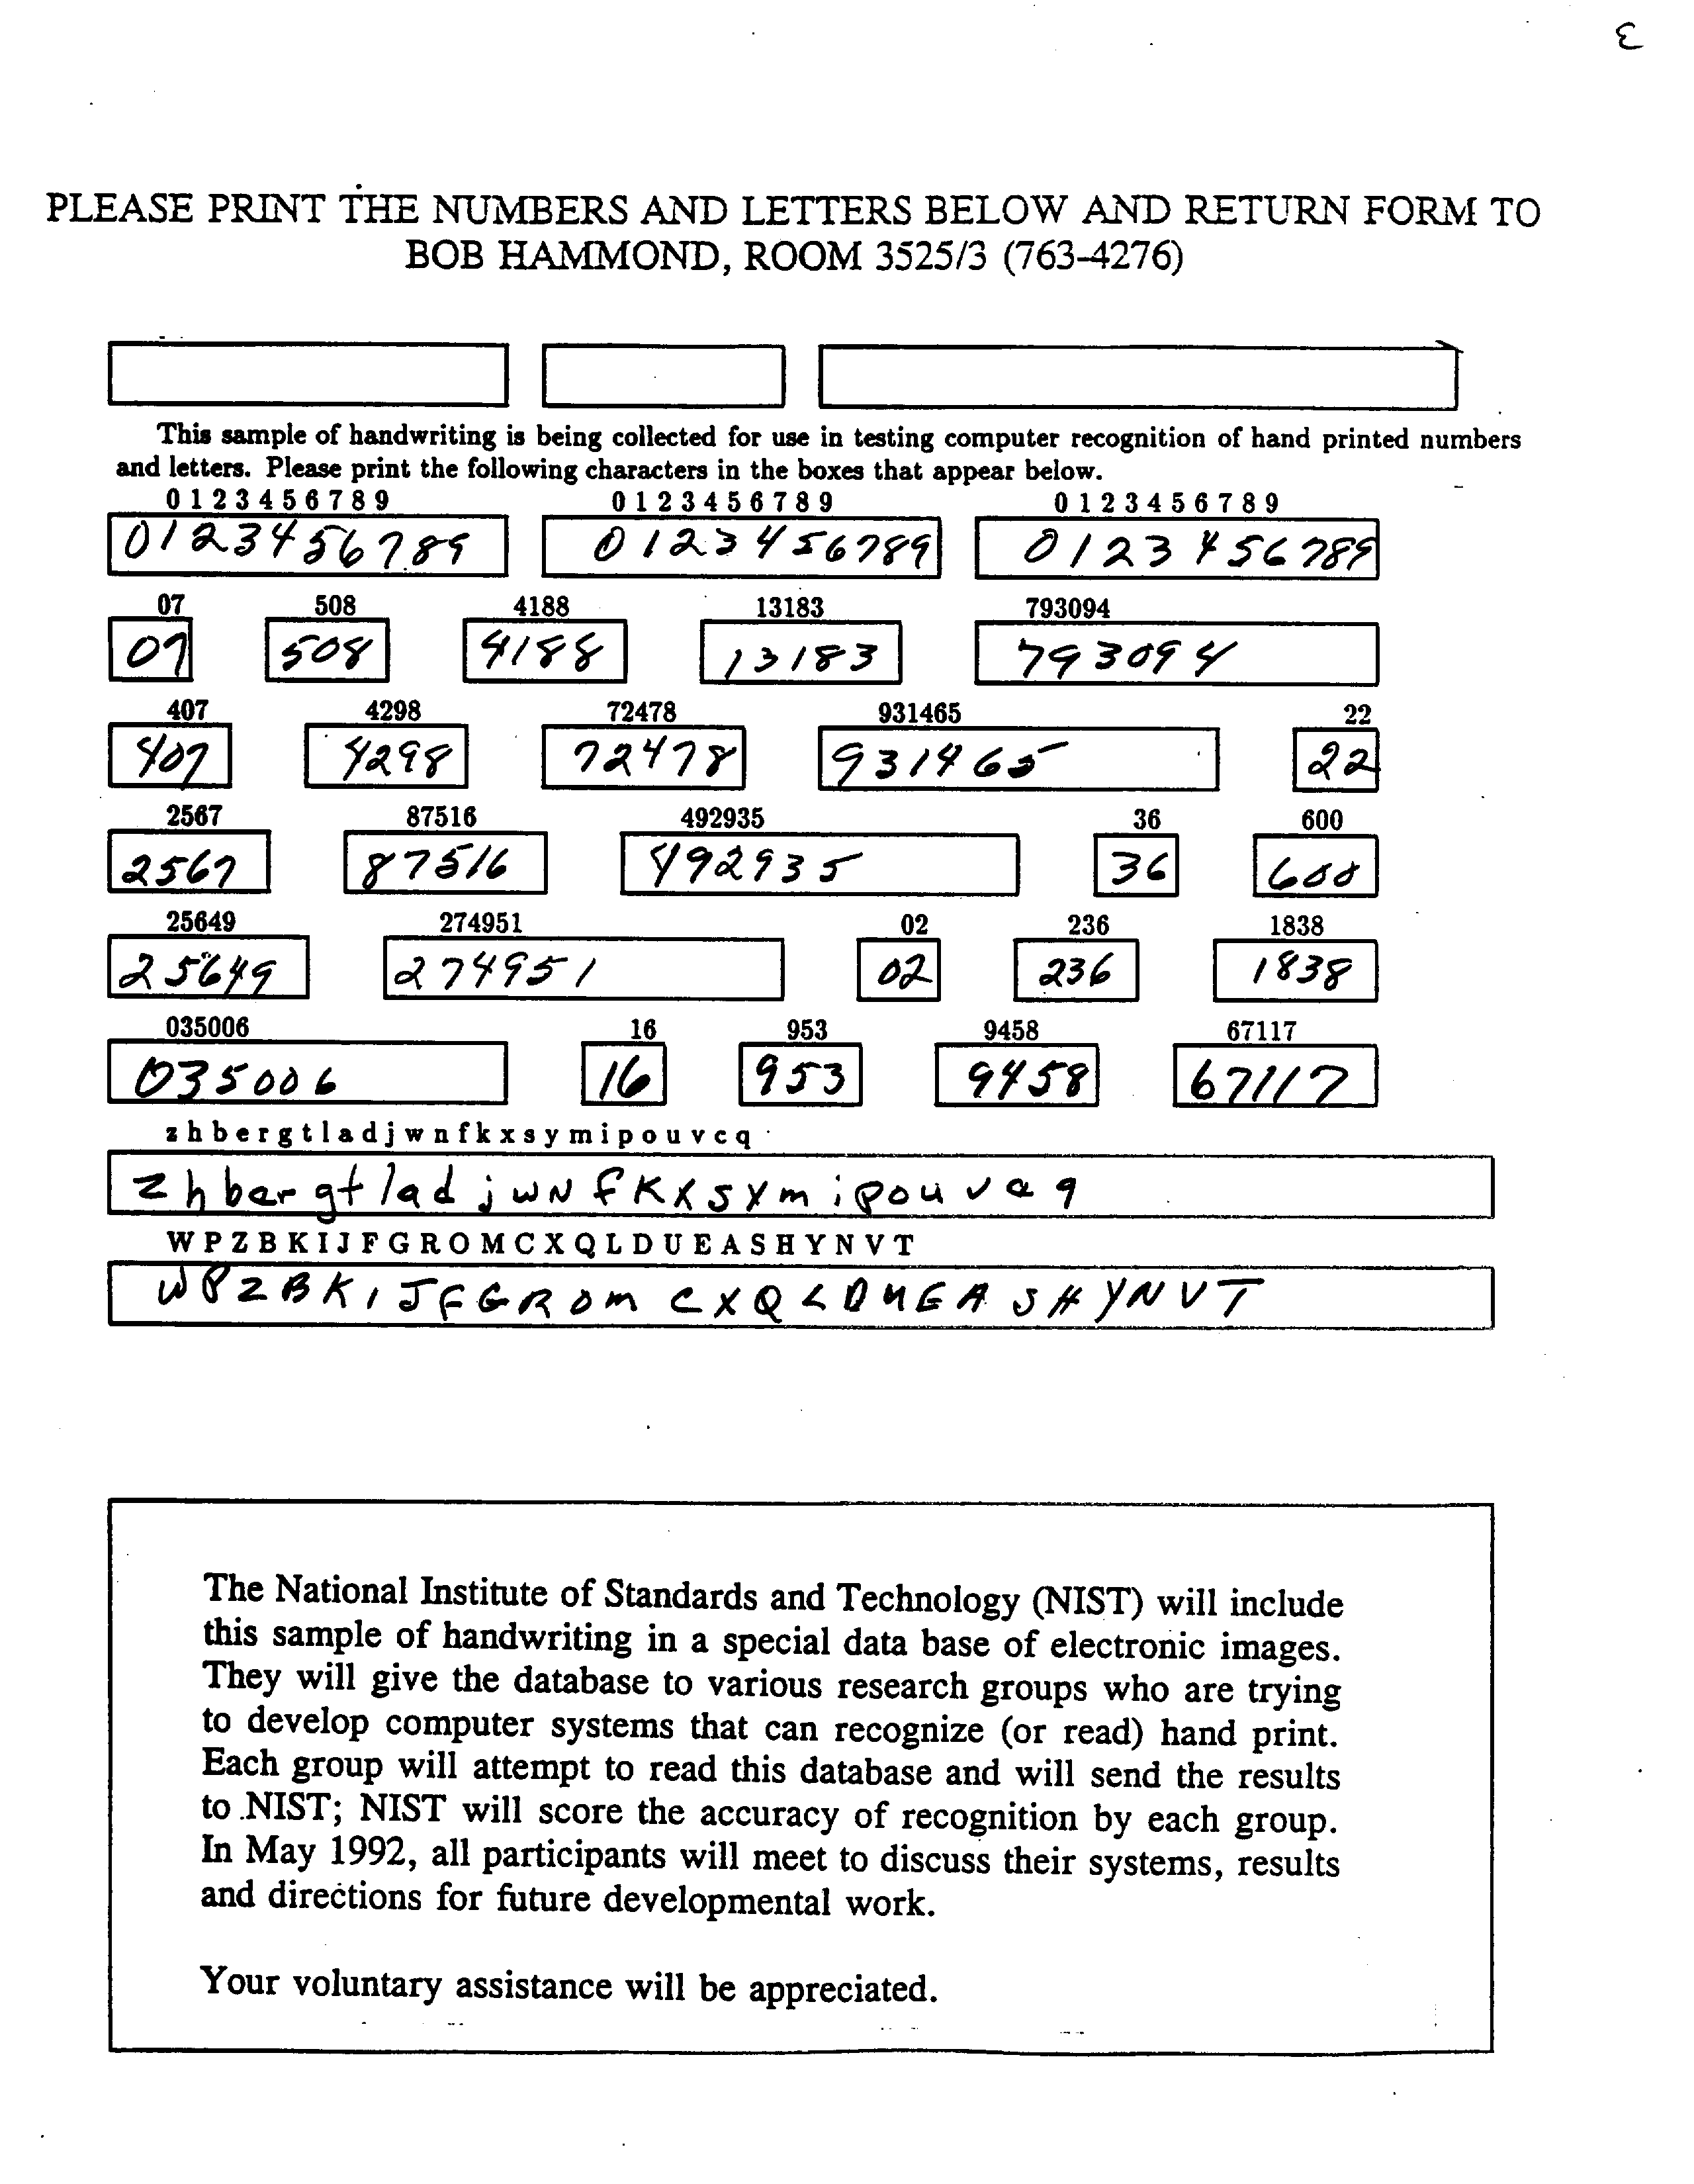 3
PLEASE PRINT THE NUMBERS AND LETTERS BELOW AND RETURN FORM TO
BOB HAMMOND, ROOM 3525/3 (763-4276)
This sample of handwriting is being collected for use in testing computer recognition of hand printed numbers
and letters. Please print the following characters in the boxes that appear below.
0 1 2 3 4 5 6 7 8 9 0 1 2 3 4 5 6 7 8 9 0 1 2 3 4 5 6 7 8 9
0123456789 0123456789 0123456789
07 508 4188 13183 793094
07 508 4188 13183 793094
407 4298 72478 931465 22
407 4298 72478 931465 22
2567 87516 492935 36 600
2567 87516 492935 36 600
25649 274951 02 236 1838
25649 274951 02 236 1838
035006 16 953 9458 67117
035006 16 953 9458 67117
z h b e r g t l a d j w n f k x s y m i p o u v c q
z h b e r g t l a d j w N f K X s y m i p o u v c q
W P Z B K I J F G R O M C X Q L D U E A S H Y N V T
W P Z B K I J F G R O m C X Q L D U E A S H Y N V T
The National Institute of Standards and Technology (NIST) will include
this sample of handwriting in a special data base of electronic images.
They will give the database to various research groups who are trying
to develop computer systems that can recognize (or read) hand print.
Each group will attempt to read this database and will send the results
to NIST; NIST will score the accuracy of recognition by each group.
In May 1992, all participants will meet to discuss their systems, results
and directions for future developmental work.
Your voluntary assistance will be appreciated.